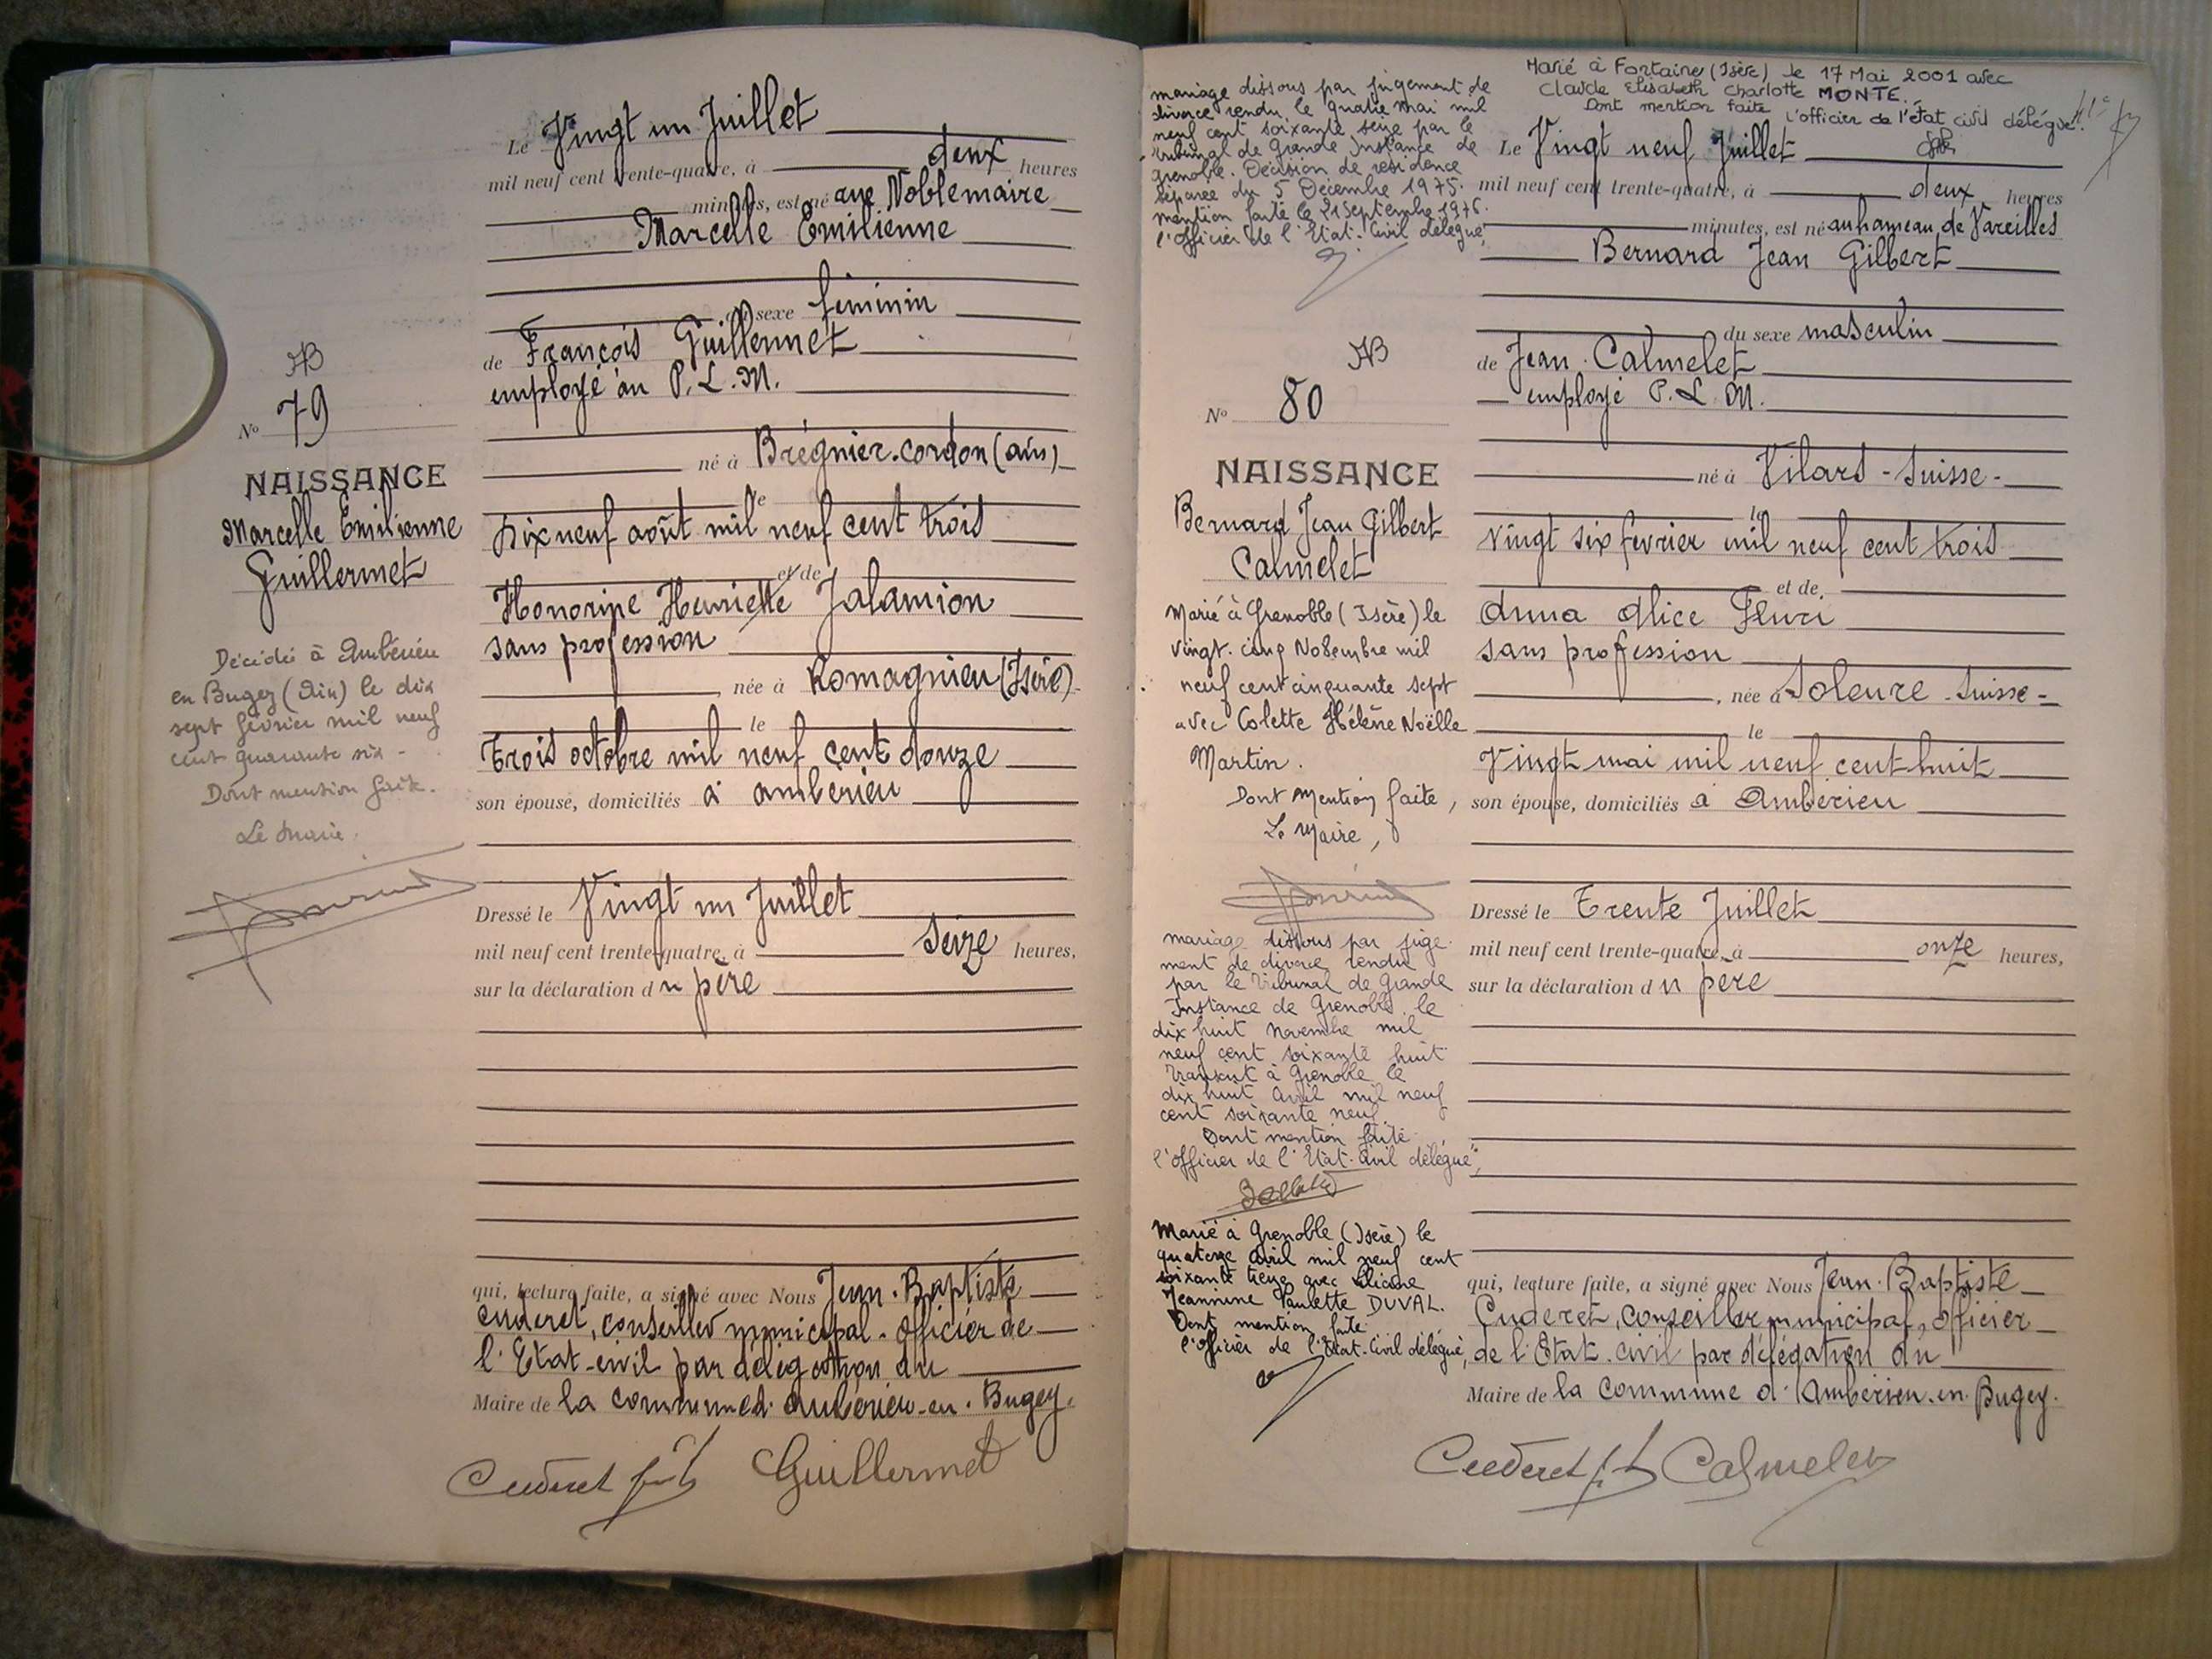 Le Vingt un Juillet
mil neuf cent trente-quatre, à deux heures
minutes, est né aue Noblemaire
Marcelle Emilienne
du sexe féminin
de François Guillermet
employé au P. L. M.
né à Brégnier-Cordon (ain)
le
dix neuf août mil neuf cent trois
et de
Honorine Henriette Jalamion
sans profession
, née à Romagnieu (Isère)
le
trois octobre mil neuf cent douze
son épouse, domiciliés à ambérieu
Dressé le Vingt un Juillet
mil neuf cent trente-quatre, à seize heures,
sur la déclaration du père
qui, lecture faite, a signé avec Nous Jean-Baptiste
Cuderet, conseiller municipal. officier de
l'Etat-civil par délégation du
Maire de la commune d'ambérieu-en-Bugey.
Cuderet Guillermet
AB
No 79
NAISSANCE
Marcelle Emilienne
Guillermet
Décédée à Ambérieu
en Bugey (Ain) le dix
sept février mil neuf
cent quarante six -
Dont mention faite.
Le Maire.
Marié à Fontaine (Isère) le 17 Mai 2001 avec
Claude Elisabeth Charlotte MONTE.
Dont mention faite L'officier de l'état civil délégué.
mariage dissous par jugement de
divorce rendu le quatre mai mil
neuf cent soixante seize par le
tribunal de Grande Instance de
Grenoble. Décision de résidence
séparée du 5 Décembre 1975.
mention faite le 21 Septembre 1976.
l'officier de l'Etat-Civil délégué,
AB
No 80
NAISSANCE
Bernard Jean Gilbert
Calmelet
Marié à Grenoble (Isère) le
vingt-cinq Novembre mil
neuf cent cinquante sept
avec Colette Hélène Noëlle
Martin.
Dont mention faite,
Le Maire,
mariage dissous par juge-
ment de divorce rendu
par le Tribunal de Grande
Instance de Grenoble le
dix huit novembre mil
neuf cent soixante huit
transcrit à Grenoble le
dix huit avril mil neuf
cent soixante neuf.
Dont mention faite
l'officier de l'Etat-Civil délégué,
Marié à Grenoble (Isère) le
quatorze avril mil neuf cent
soixante treize avec Liliane
Jeannine Paulette DUVAL.
Dont mention faite
l'officier de l'Etat-Civil délégué,
Le Vingt neuf Juillet
mil neuf cent trente-quatre, à deux heures
minutes, est né au hameau de Vareilles
Bernard Jean Gilbert
du sexe masculin
de Jean Calmelet
employé P. L. M.
né à Vilars - Suisse -
le
vingt six février mil neuf cent trois
et de
Anna Alice Fluri
sans profession
, née à Soleure - Suisse -
le
Vingt mai mil neuf cent huit
son épouse, domiciliés à Ambérieu
Dressé le Trente Juillet
mil neuf cent trente-quatre, à onze heures,
sur la déclaration du père
qui, lecture faite, a signé avec Nous Jean-Baptiste
Cuderet, conseiller municipal, officier
de l'Etat-civil par délégation du
Maire de la commune d'Ambérieu-en-Bugey.
Cuderet Calmelet